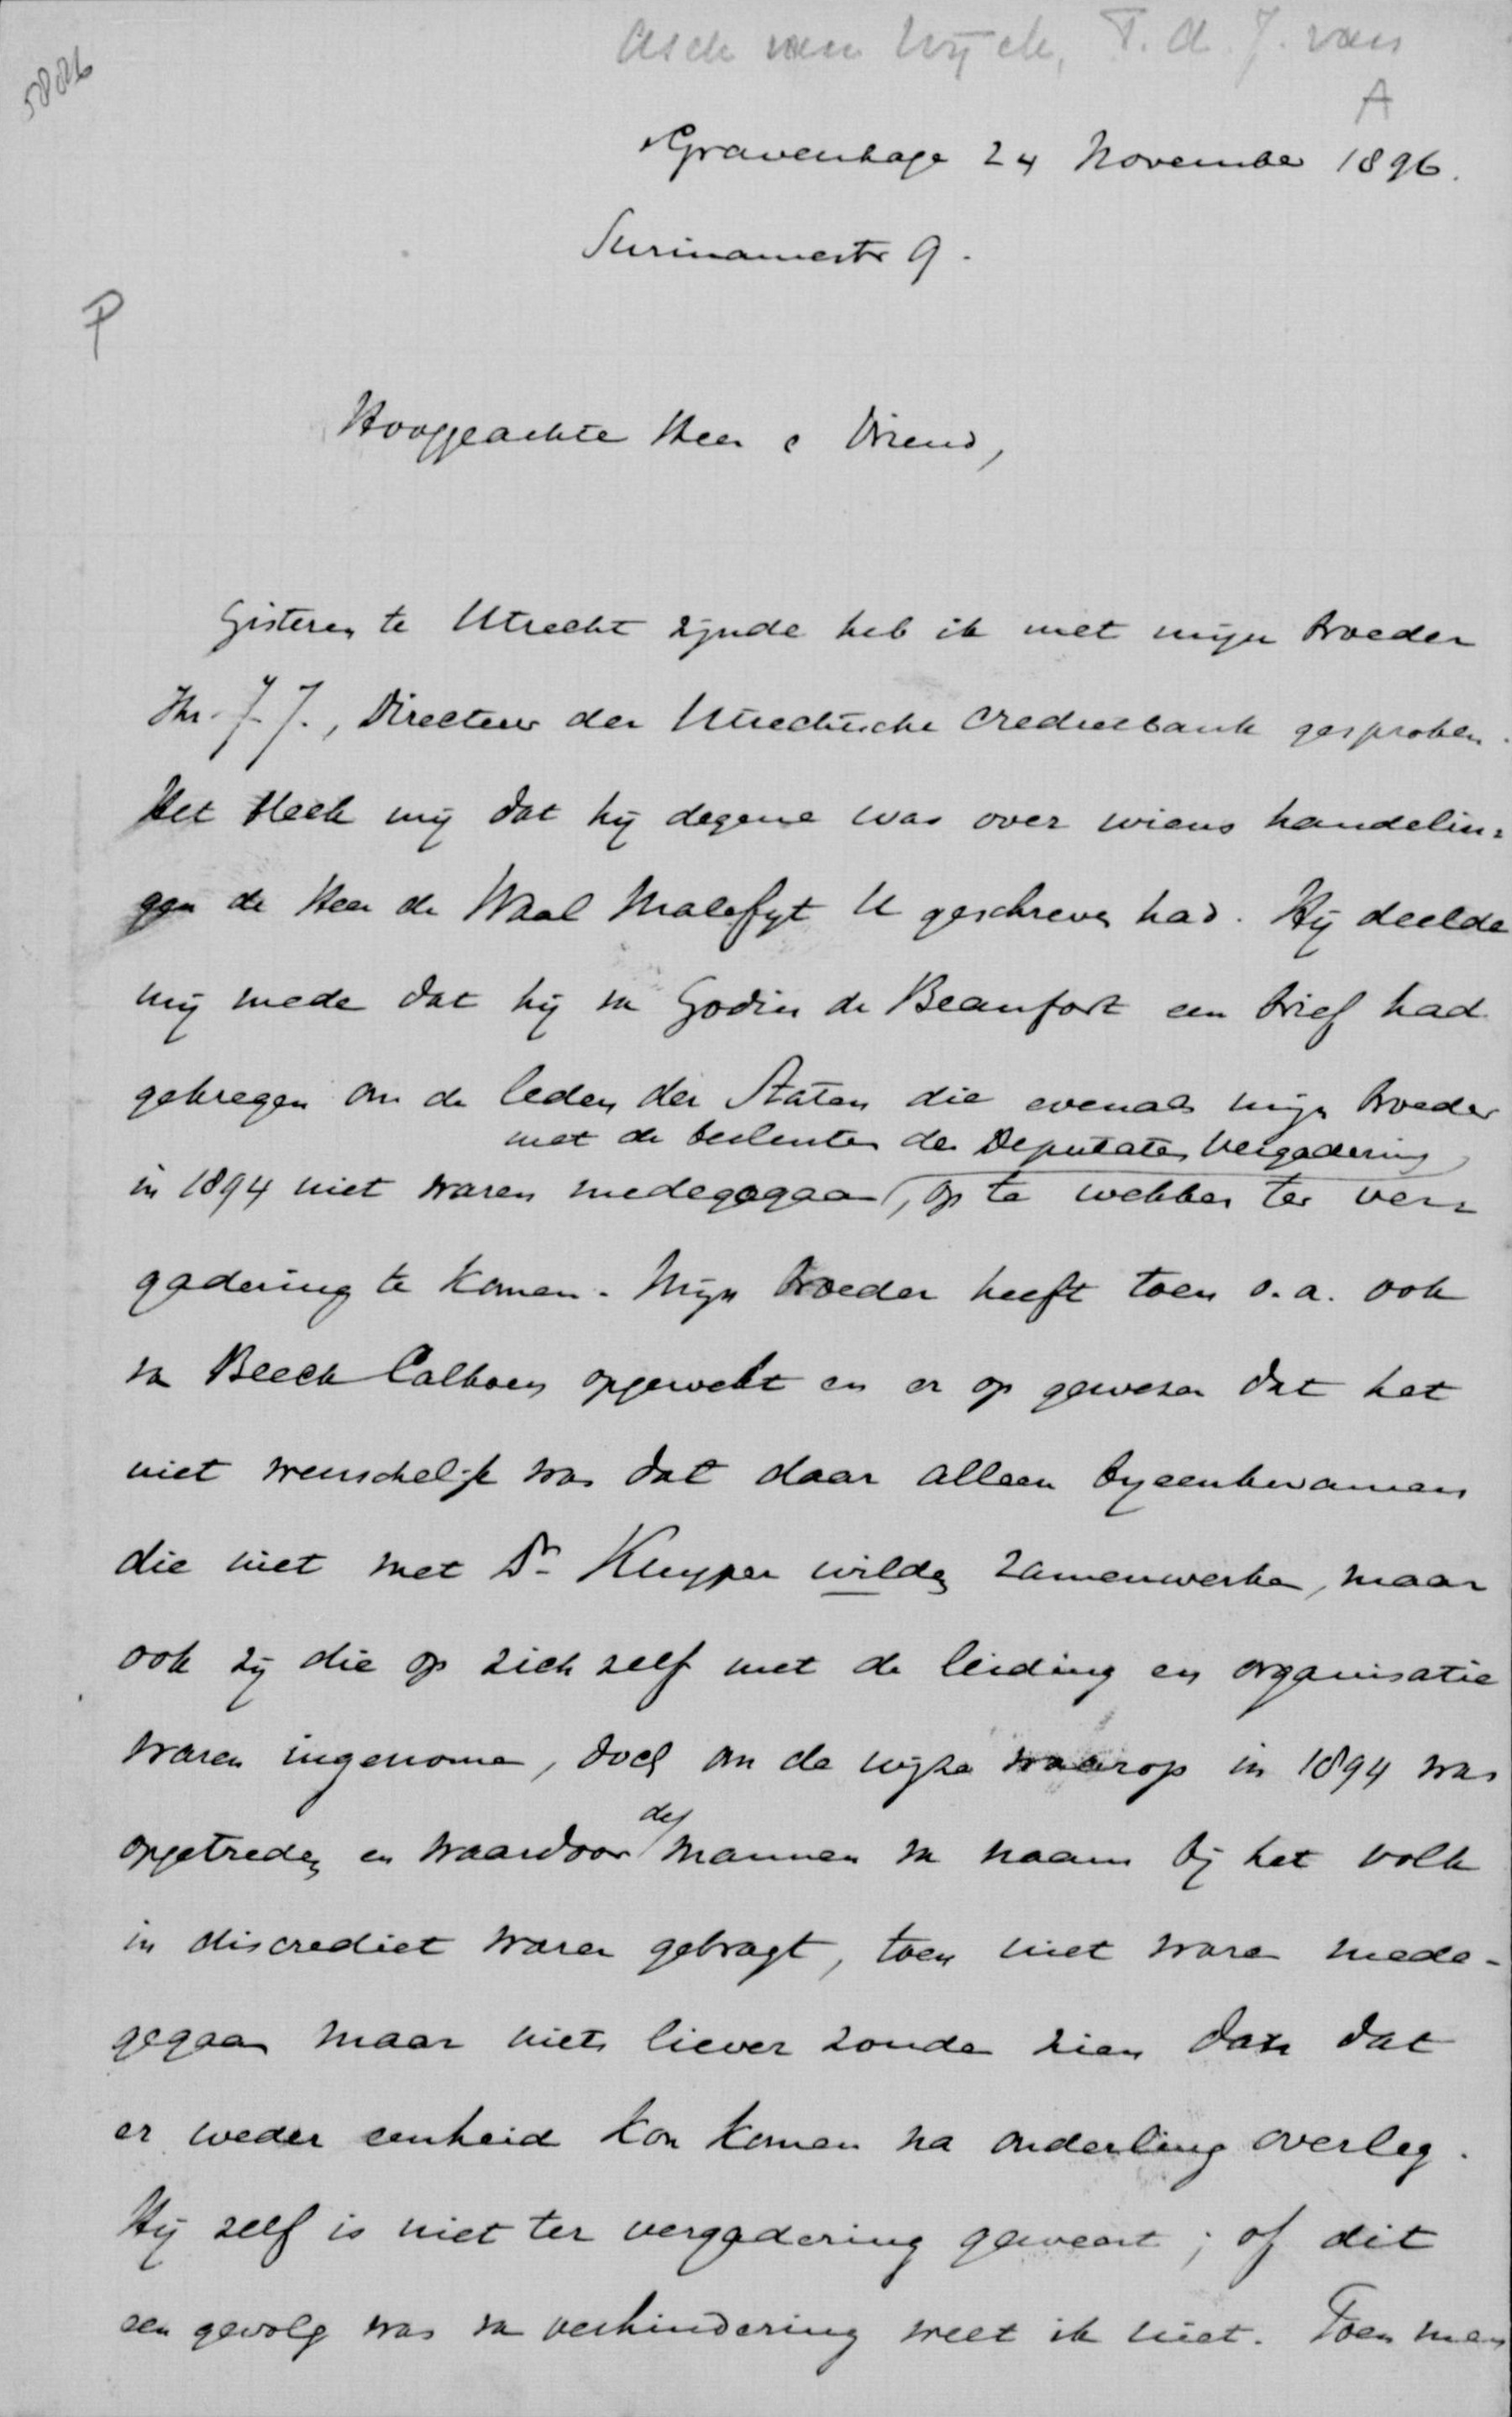 Asch van Wijck, T. A. J. van
5886
A
'sGravenhage 24 November 1896.
Surinamestr 9.
P
Hooggeachte Heer & Vriend,
Gisteren te Utrecht zijnde heb ik met mijn broeder
Jhr. J. J., Directeur der Utrechtsche Credietbank gesproken.
Het bleek mij dat hij degene was over wiens handelin=
gen de Heer de Waal Malefyt U geschreven had. Hij deelde
mij mede dat hij van Godin de Beaufort een brief had
gekregen om de leden der Staten die evenals mijn broeder
met de besluiten der Deputaten Vergadering
in 1894 niet waren medegegaan, op te wekken ter ver=
gadering te komen. Mijn broeder heeft toen o.a. ook
van Beeck Calkoen opgewekt en er op gewezen dat het
niet wenschelijk was dat daar alleen bijeenkwamen
die niet met Dr Kuyper wilden zamenwerken, maar
ook zij die op zich zelf met de leiding en organisatie
waren ingenomen, doch om de wijze waarop in 1894 was
opgetreden en waardoor de
mannen van naam bij het volk
in discrediet waren gebragt, toen niet waren mede-
gegaan maar niets liever zouden zien dan dat
er weder eenheid kon komen na onderling overleg.
Hij zelf is niet ter vergadering geweest; of dit
een gevolg was van verhindering weet ik niet. Toen men